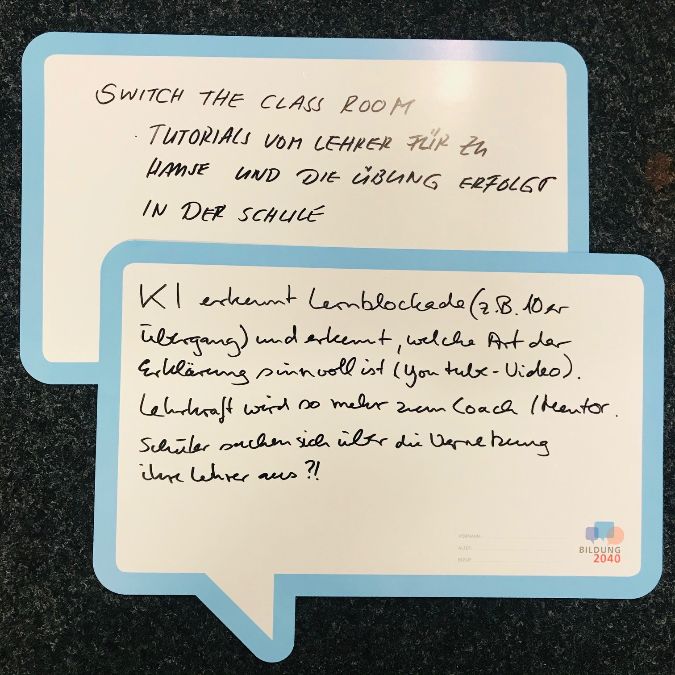 SWITCH THE CLASS ROOM
· TUTORIALS VOM LEHRER FÜR ZU
HAUSE UND DIE ÜBUNG ERFOLGT
IN DER SCHULE
KI erkennt Lernblockade (z.B. 10er
Übergang) und erkennt, welche Art der
Erklärung sinnvoll ist (You tube-Video).
Lehrkraft wird so mehr zum Coach / Mentor.
Schüler suchen sich über die Vernetzung
ihre Lehrer aus?!
VORNAME:
ALTER:
BERUF:
BILDUNG
2040